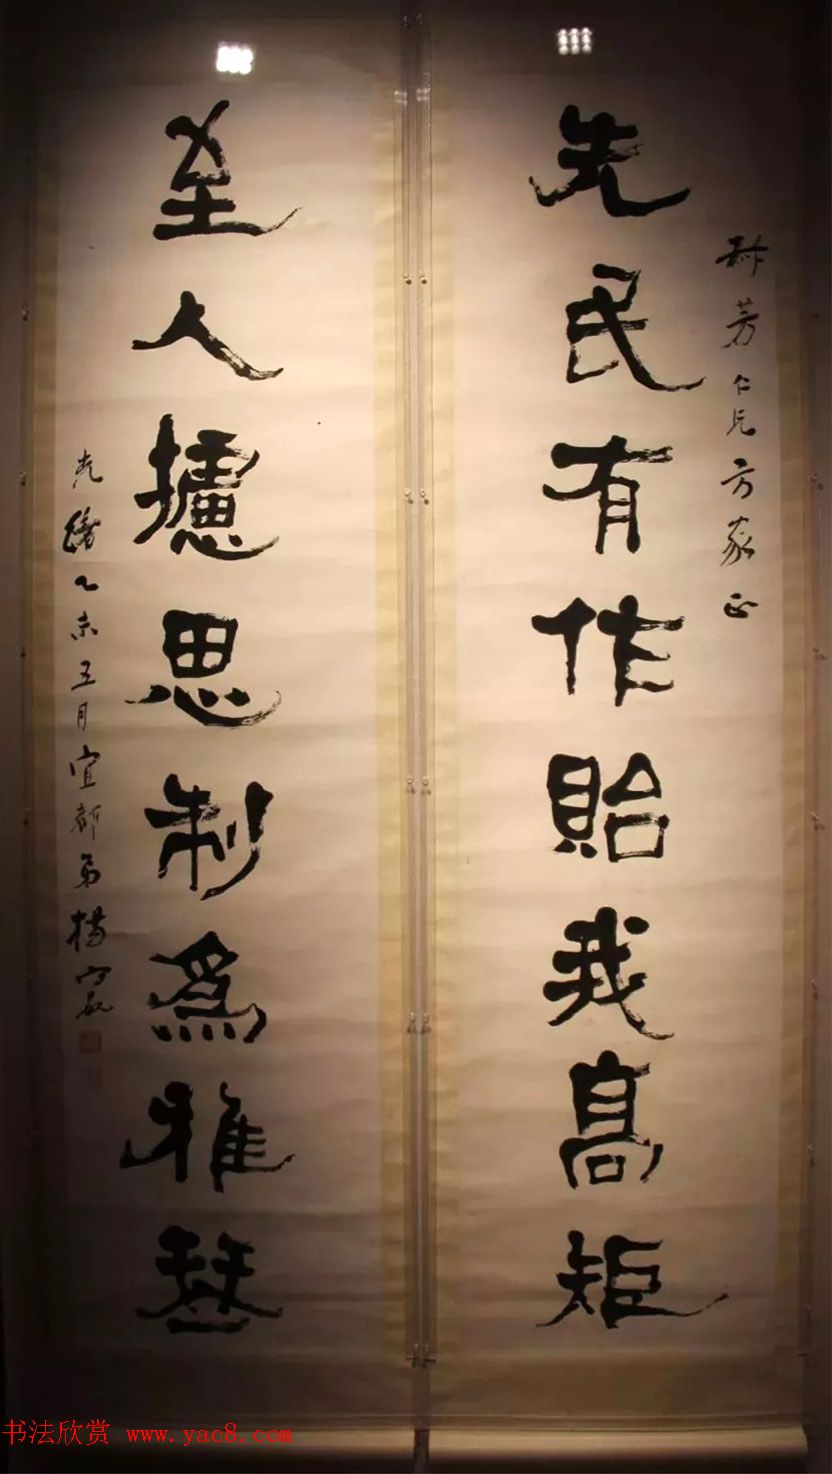 先民有作貽我高矩
芳仁兄方家正
至人攄思制為雅琴
光緒乙未五月宜都弟楊守敬
书法欣赏 www.yac8.com